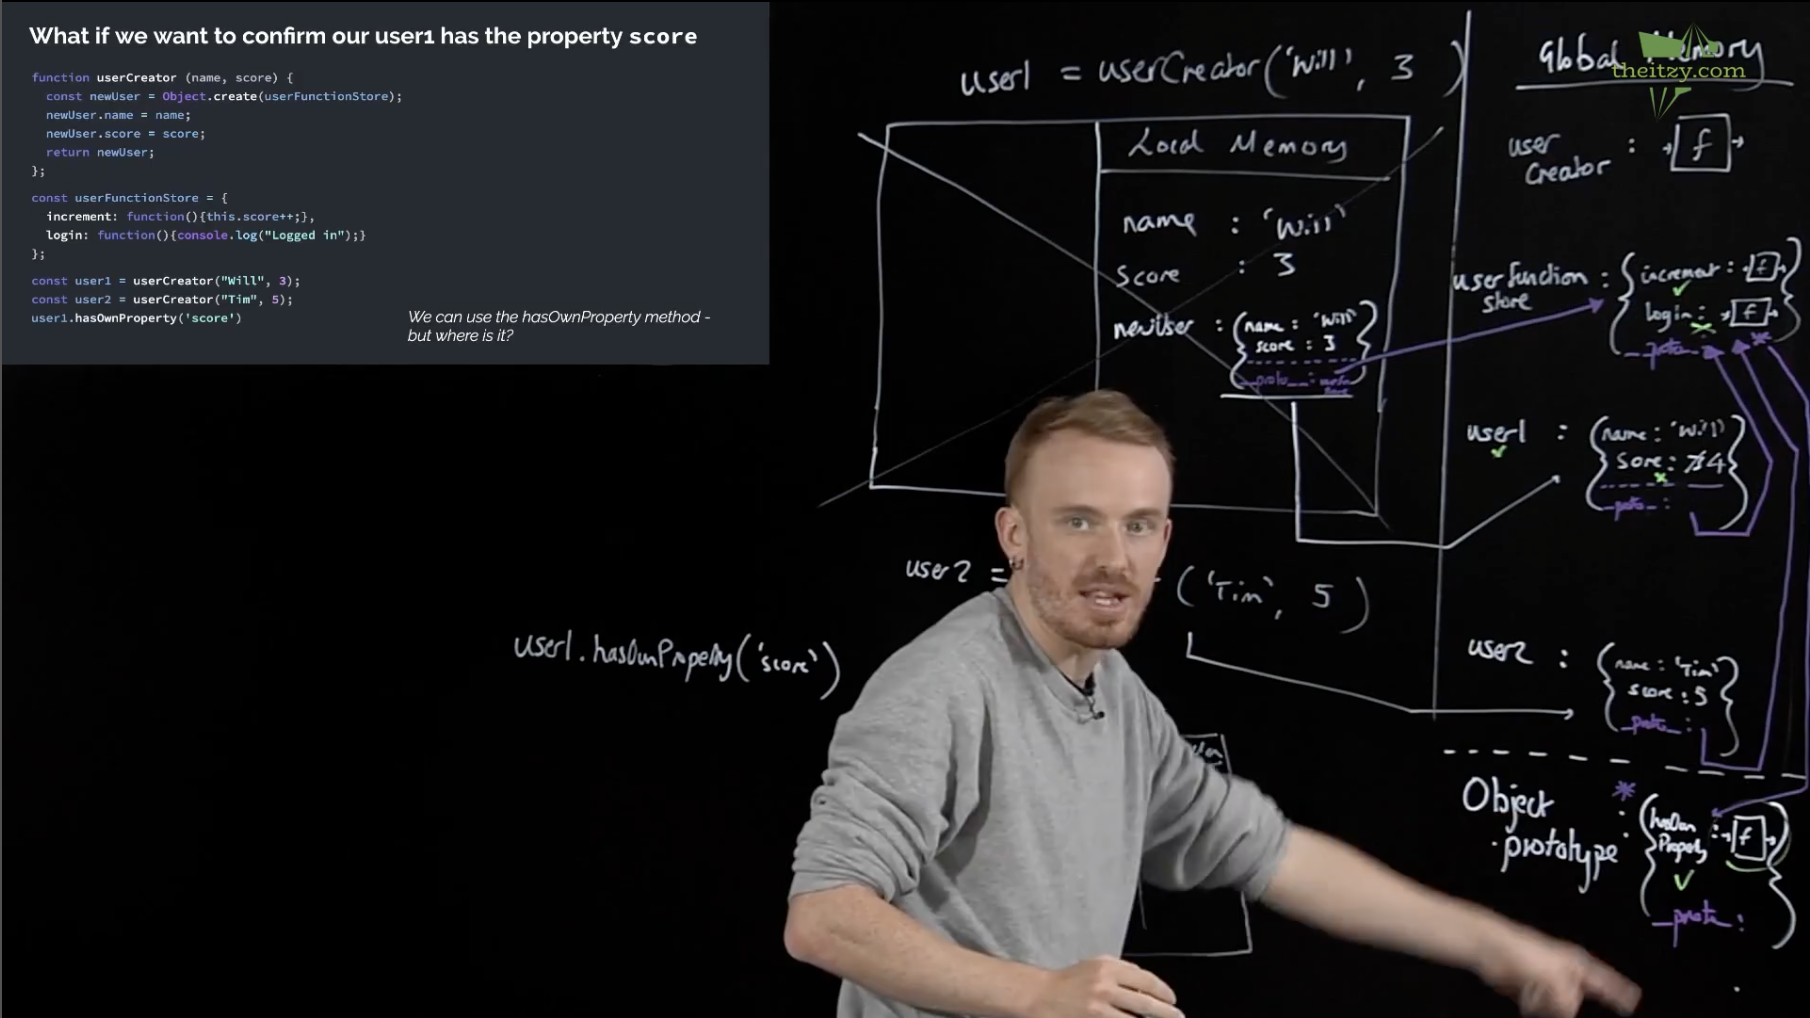 What if we want to confirm our user1 has the property score
function userCreator (name, score) {
const newUser = Object.create(userFunctionStore);
newUser.name = name;
newUser.score = score;
return newUser;
};
const userFunctionStore = {
increment: function(){this.score++;},
login: function(){console.log("Logged in");}
};
const user1 = userCreator("Will", 3);
const user2 = userCreator("Tim", 5);
user1.hasOwnProperty('score')
We can use the hasOwnProperty method -
but where is it?
user1 = userCreator('Will', 3)
Local Memory
name : 'Will'
Score : 3
newUser : {name : 'Will'
score : 3
__proto__ :
}
user2 = ('Tim', 5)
user1.hasOwnProperty('score')
Global Memory
theitzy.com
user Creator : f
userFunction store : {increment : f
login : f
__proto__ *
}
user1 : {name : 'Will'
Sore : 34
__proto__ :
}
user2 : {name : 'Tim'
score : 5
__proto__ :
}
Object *
.prototype : {hasOwn
Property : f
__proto__ :
}